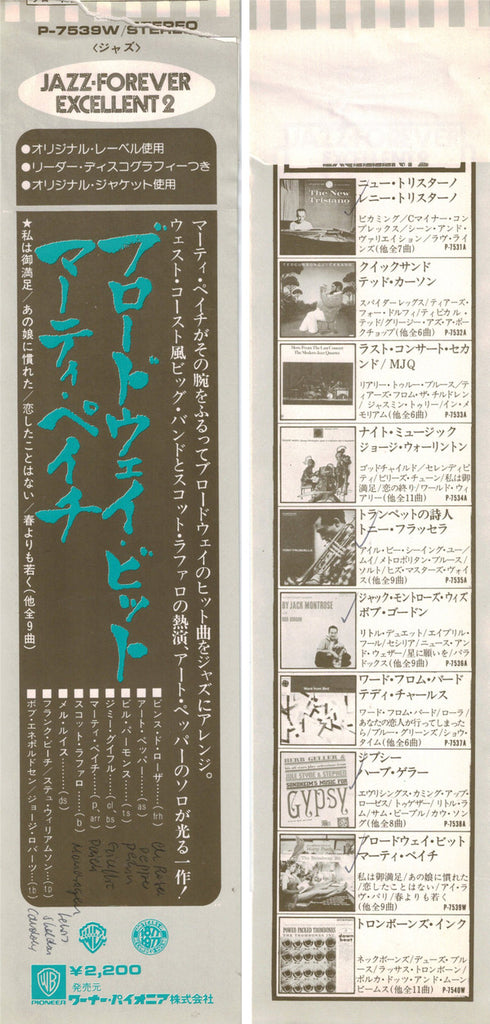 P-7539W/STEREO
〈ジャズ〉
JAZZ-FOREVER
EXCELLENT 2
●オリジナル・レーベル使用
●リーダー・ディスコグラフィーつき
●オリジナル・ジャケット使用
マーティ・ペイチがその腕をふるってブロードウェイのヒット曲をジャズにアレンジ。
ウェスト・コースト風ビッグ・バンドとスコット・ラファロの熱演、アート・ペッパーのソロが光る一作！
ブロードウェイ・ビット
マーティ・ペイチ
★私は御満足/あの娘に慣れた/恋したことはない/春よりも若く(他全9曲)
■ビンス・ド・ローザ……(frh)
■アート・ペッパー……(as)
■ビル・パーキンス……(ts)
■ジミー・グイフル……(cl, bs)
■マーティ・ペイチ……(p, arr)
■スコット・ラファロ……(b)
■メル・ルイス……(ds)
■フランク・ビーチ/ステュ・ウィリアムソン……(tp)
■ボブ・エネボルドセン/ジョージ・ロバーツ……(tb)
¥2,200
発売元
ワーナー・パイオニア株式会社
PIONEER
ニュー・トリスターノ
レニー・トリスターノ
ビカミング/Cマイナー・コン
プレックス/シーン・アンド・
ヴァリエイション/ラヴ・ライ
ンズ(他全7曲)
P-7531A
The New
Tristano
クイックサンド
テッド・カーソン
スパイダーレッグス/ティアーズ・
フォー・ドルフィ/ティピカル・
テッド/グリージー・アズ・ア・ポー
クチョップ(他全6曲)
P-7532A
ラスト・コンサート・セカ
ンド/MJQ
リアリー・トゥルー・ブルース/ティ
アーズ・フロム・ザ・チルドレン
/ジャスミン・トゥリー/イン・メ
モリアム(他全6曲)
P-7533A
More From The Last Concert
The Modern Jazz Quartet
ナイト・ミュージック
ジョージ・ウォーリントン
ゴッドチャイルド/セレンディピ
ティ/ビリーズ・チューン/私は御
満足/恋の終り/ワールド・ウィ
アリー(他全11曲)
P-7534A
トランペットの詩人
トニー・フラッセラ
アイル・ビー・シーイング・ユー/
ムイ/メトロポリタン・ブルース/
ソルト/ヒズ・マスターズ・ヴォイ
ス(他全9曲)
P-7535A
ジャック・モントローズ・ウィズ
ボブ・ゴードン
リトル・デュエット/エイプリル・
フール/セシリア/ニュース・アン
ド・ウェザー/星に願いを/パラ
ドックス(他全9曲)
P-7536A
BY JACK MONTROSE
ワード・フロム・バード
テディ・チャールス
ワード・フロム・バード/ローラ/
あなたの恋人が行ってしまった
ら/ブルー・グリーンズ/ショウ・
タイム(他全6曲)
P-7537A
Word from Bird
ジプシー
ハーブ・ゲラー
エヴリシングス・カミング・アップ・
ローゼス/トゥゲザー/リトル・ラ
ム/サム・ピープル/カウ・ソン
グ(他全8曲)
P-7538A
HERB GELLER &
JULE STYNE & STEPHEN
SONDHEIM'S MUSIC FOR
GYPSY
ブロードウェイ・ビット
マーティ・ペイチ
私は御満足/あの娘に慣れた
/恋したことはない/アイ・ラ
ヴ・パリ/春よりも若く
(他全9曲)
P-7539W
トロンボーンズ・インク
ネックボーンズ/デューズ・ブル
ース/ラッサス・トロンボーン/
ポルカ・ドッツ・アンド・ムーン
ビームス(他全11曲)
P-7540W
POWER PACKED TROMBONES